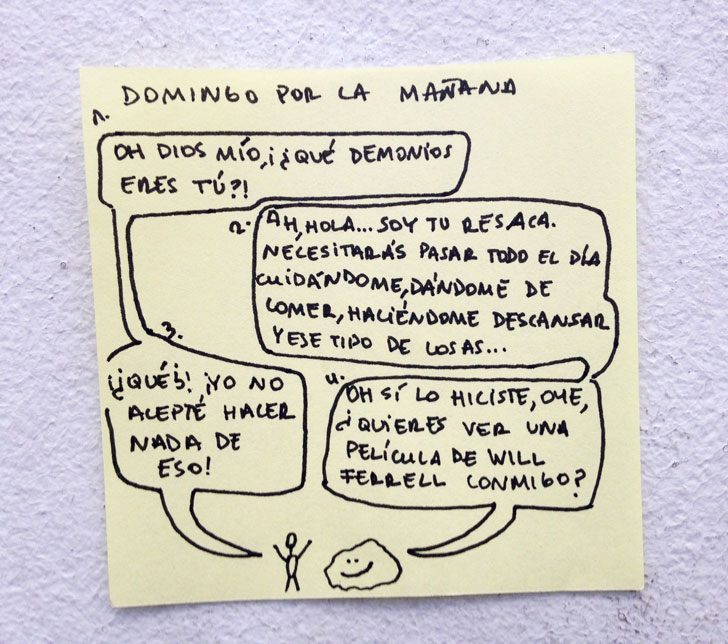 DOMINGO POR LA MAÑANA
1.
OH DIOS MÍO, ¡¿QUÉ DEMONIOS
ERES TÚ?!
2.
AH, HOLA... SOY TU RESACA.
NECESITARÁS PASAR TODO EL DÍA
CUIDÁNDOME, DÁNDOME DE
COMER, HACIÉNDOME DESCANSAR
Y ESE TIPO DE COSAS...
3.
¡¿QUÉ?! ¡YO NO
ACEPTÉ HACER
NADA DE
ESO!
4.
OH SÍ LO HICISTE, OYE,
¿QUIERES VER UNA
PELÍCULA DE WILL
FERRELL CONMIGO?